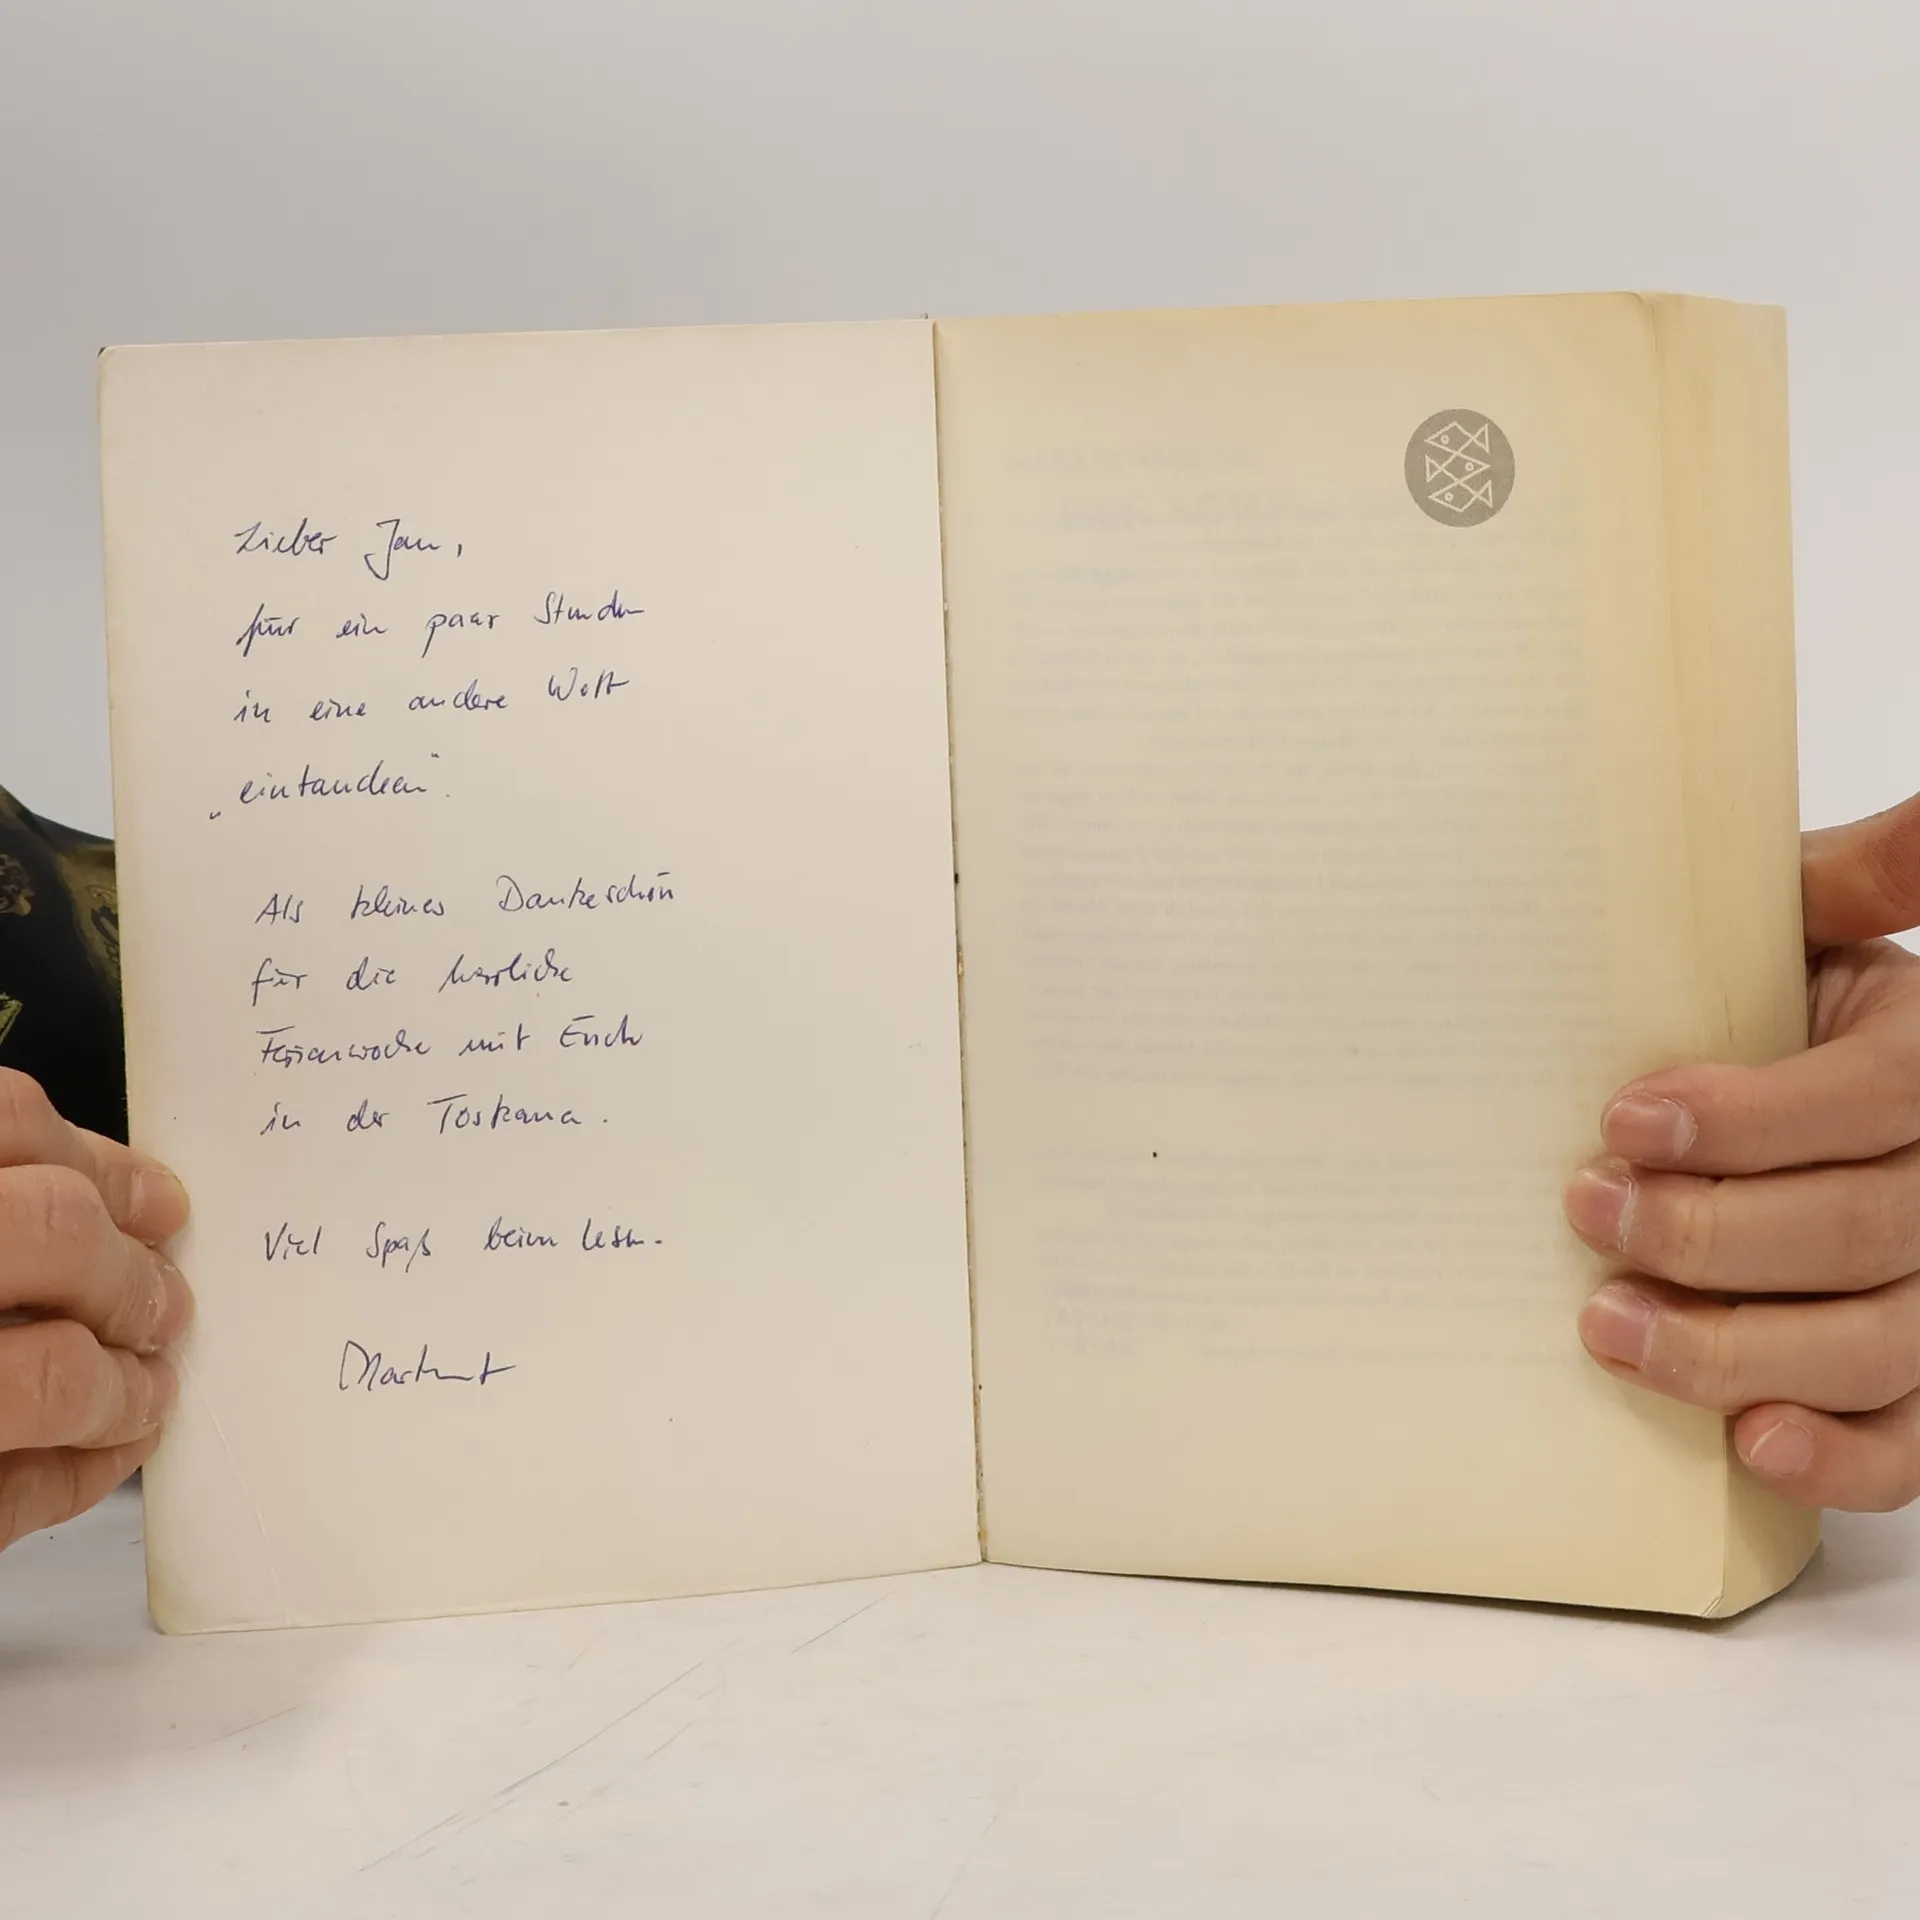 Lieber Jan,
für ein paar Stunden
in eine andere Welt
„eintauchen“.
Als kleines Dankeschön
für die herrliche
Ferienwoche mit Euch
in der Toskana.
Viel Spaß beim Lesen.
Hartmut